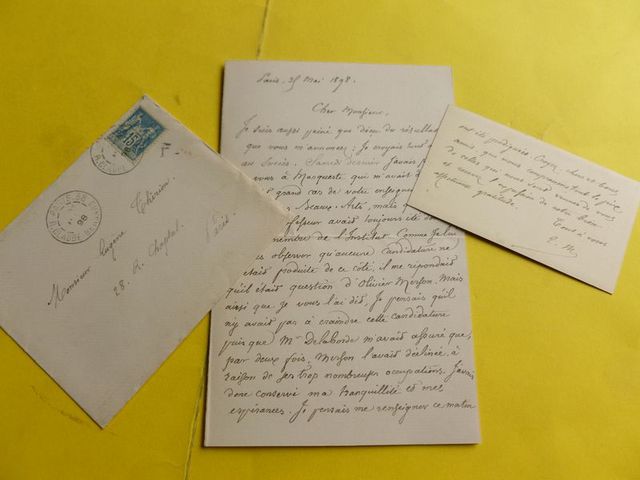 Paris, 25 Mai 1898.
Cher Monsieur,
Je suis aussi peiné que déçu du résultat
que vous m'annoncez ; Je croyais tout
au succès. Samedi dernier j'avais
vous à Marqueste qui m'avait
grand cas de votre enseignement
Beaux-Arts, mais
fesseur avait toujours été
membre de l'Institut. Comme je lui
observer qu'aucune candidature ne
était produite de ce côté, il me répondait
qu'il était question d'Olivier Merson. Mais
ainsi que je vous l'ai dit, Je pensais qu'il
n'y avait pas à craindre cette candidature
puis que Mr Delaborde m'avait assuré que,
par deux fois, Merson l'avait déclinée, à
raison de ses trop nombreuses occupations. J'avais
donc conservé ma tranquillité et mes
espérances. Je pensais me renseigner ce matin
15
98
Monsieur Eugène Thirion
28 R. Chaptal
Paris.
ont été prodiguées. Croyez, chers et bons
amis que nous comprenons tout le prix
de celui qui nous vient de vous
et de votre bien
affectueuse gratitude.
Tout à vous